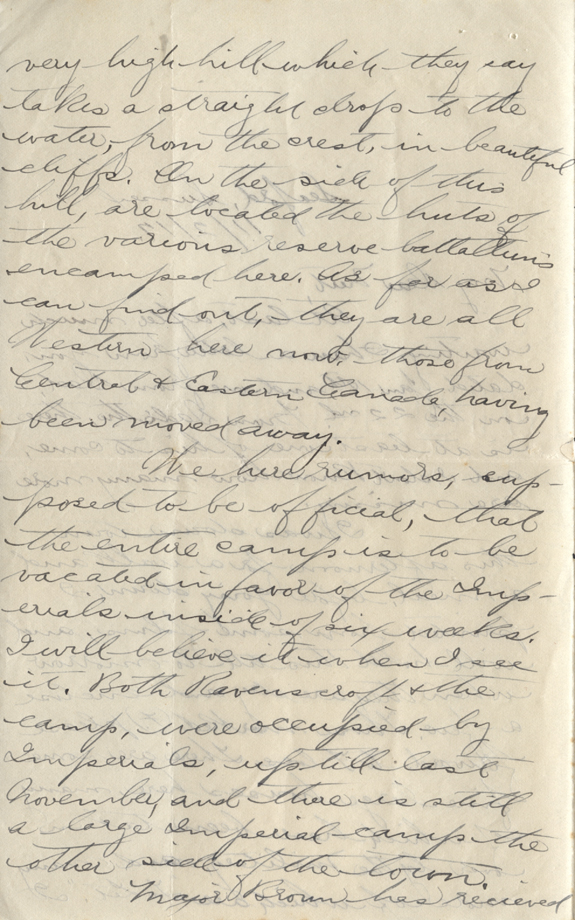 very high hill which they say
takes a straight drop to the
water, from the crest, in beautiful
cliffs. On the side of this
hill, are located the huts of
the various reserve battalions
encamped here. As far as I
can find out, they are all
Western here now, those from
Central & Eastern Canada, having
been moved away.
We here rumors, sup-
posed to be official, that
the entire camp is to be
vacated in favor of the Imp-
erials inside of six weeks.
I will believe it when I see
it. Both Ravenscroft & the
camp, were occupied by
Imperials, up till last
November, and there is still
a large Imperial camp the
other side of the town.
Major Brown has recieved